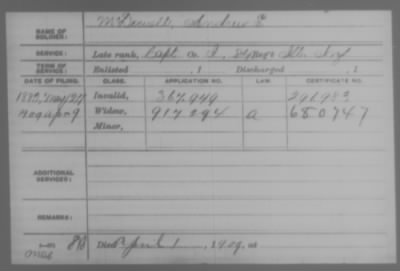 NAME OF SOLDIER: McDowell, Andrew
SERVICE: Late rank, Capt. Co. I, Regt. Ills. Inf
TERM OF SERVICE: Enlisted , 1 Discharged , 1
DATE OF FILING. CLASS. APPLICATION NO. LAW. CERTIFICATE NO.
1880, May 27 Invalid, 367.949
1909 Apr 9 Widow, 917.294 a 680747
Minor,
ADDITIONAL SERVICES:
REMARKS:
Died April 1, 1909, at